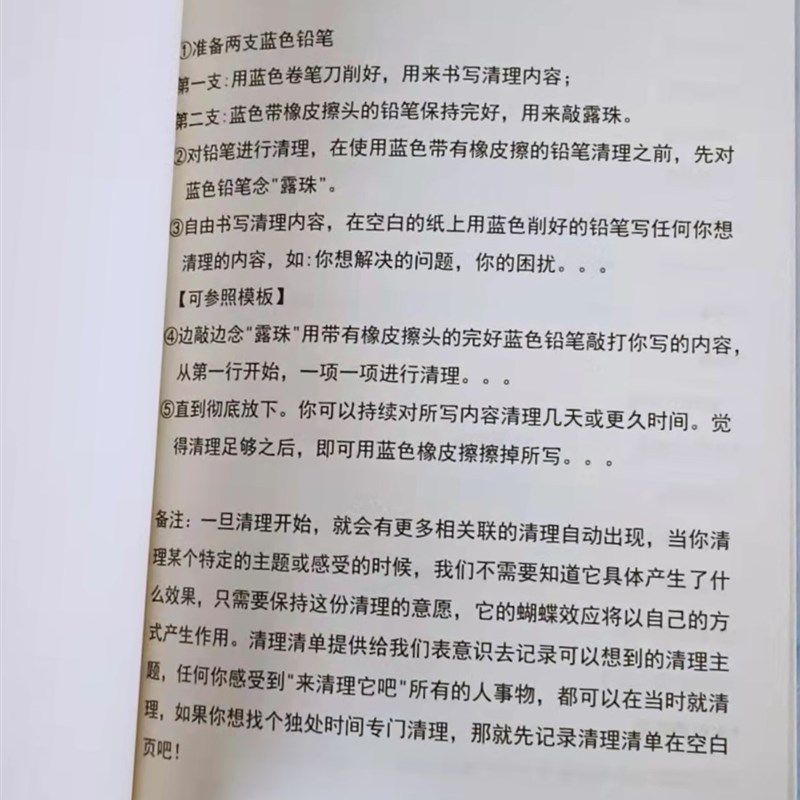 ①准备两支蓝色铅笔
第一支:用蓝色卷笔刀削好，用来书写清理内容；
第二支:蓝色带橡皮擦头的铅笔保持完好，用来敲露珠。
②对铅笔进行清理，在使用蓝色带有橡皮擦的铅笔清理之前，先对
蓝色铅笔念“露珠”。
③自由书写清理内容，在空白的纸上用蓝色削好的铅笔写任何你想
清理的内容，如:你想解决的问题，你的困扰。。。
【可参照模板】
④边敲边念“露珠”用带有橡皮擦头的完好蓝色铅笔敲打你写的内容，
从第一行开始，一项一项进行清理。。。
⑤直到彻底放下。你可以持续对所写内容清理几天或更久时间。觉
得清理足够之后，即可用蓝色橡皮擦擦掉所写。。。
备注：一旦清理开始，就会有更多相关联的清理自动出现，当你清
理某个特定的主题或感受的时候，我们不需要知道它具体产生了什
么效果，只需要保持这份清理的意愿，它的蝴蝶效应将以自己的方
式产生作用。清理清单提供给我们表意识去记录可以想到的清理主
题，任何你感受到“来清理它吧”所有的人事物，都可以在当时就清
理，如果你想找个独处时间专门清理，那就先记录清理清单在空白
页吧！